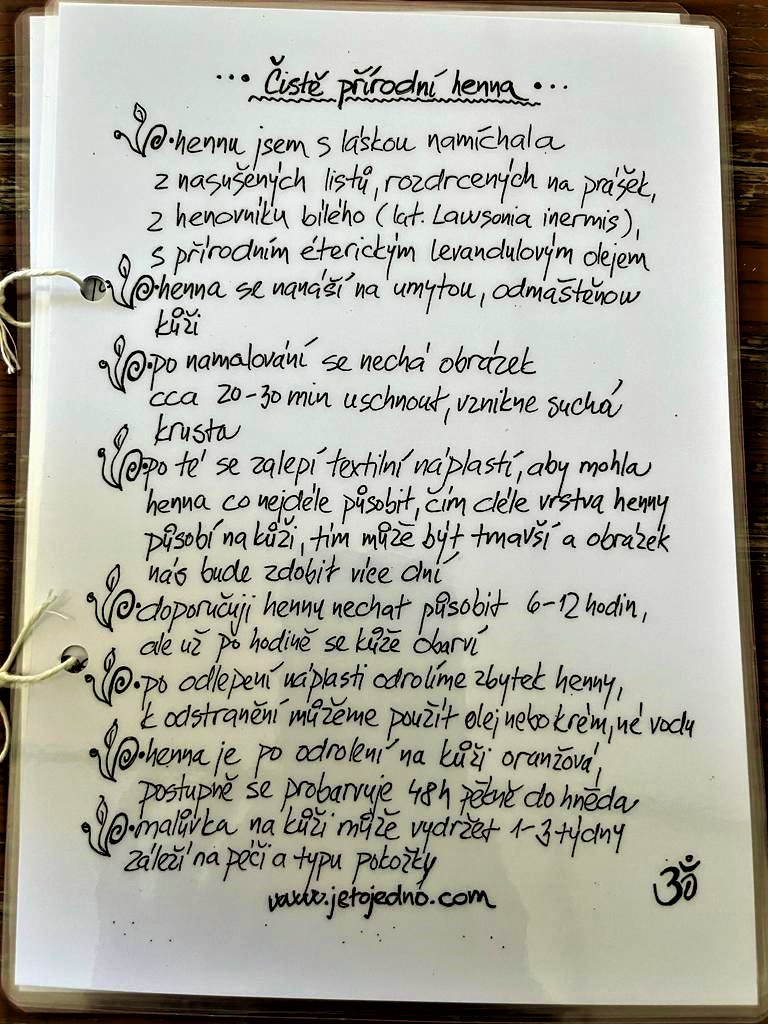 ...Čistě přírodní henna...
hennu jsem s láskou namíchala
z nasušených listů, rozdrcených na prášek,
z henovníku bílého (lat. Lawsonia inermis),
s přírodním éterickým levandulovým olejem
henna se nanáší na umytou, odmaštěnou
kůži
po namalování se nechá obrázek
cca 20-30 min uschnout, vznikne suchá
krusta
po té se zalepí textilní náplastí, aby mohla
henna co nejdéle působit, čím déle vrstva henny
působí na kůži, tím může být tmavší a obrázek
nás bude zdobit více dní
doporučuji hennu nechat působit 6-12 hodin,
ale už po hodině se kůže obarví
po odlepení náplasti odrolíme zbytek henny,
k odstranění můžeme použít olej nebo krém, né vodu
henna je po odrolení na kůži oranžová,
postupně se probarvuje 48h pěkně do hněda
malůvka na kůži může vydržet 1-3 týdny
záleží na péči a typu pokožky
www.jetojedno.com
ॐ